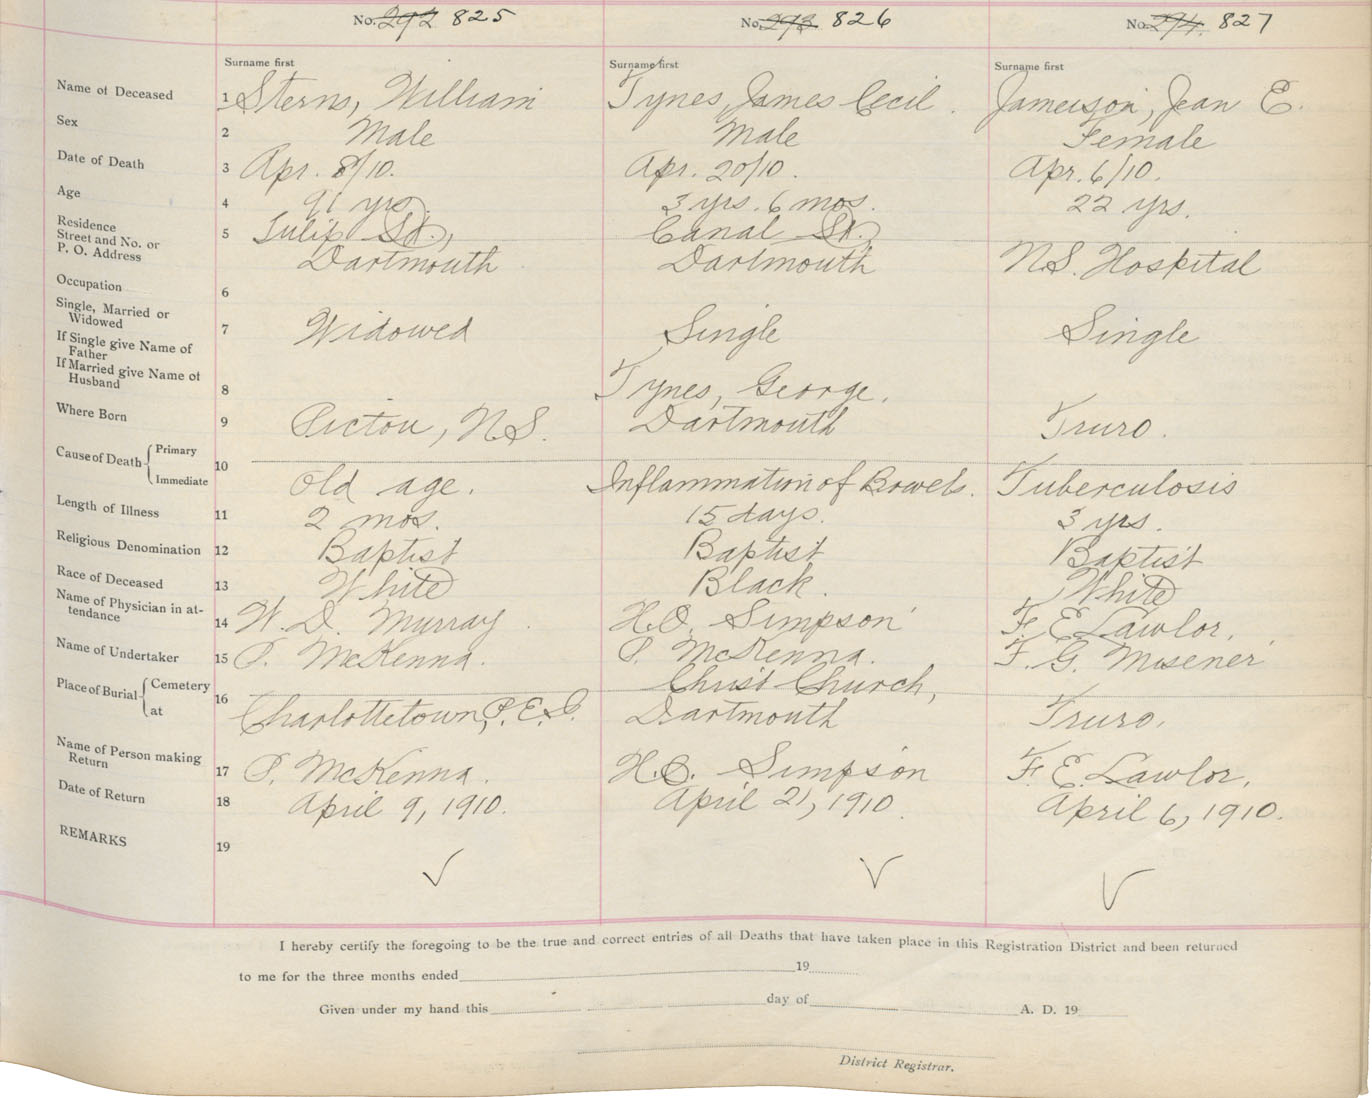 No. 292 825 No. 293 826 No. 294. 827
Surname first Surname first Surname first
Name of Deceased 1 Sterns, William Tynes, James Cecil. Jameison, Jean E.
Sex 2 Male Male Female
Date of Death 3 Apr. 8/10. Apr. 20/10. Apr. 6/10.
Age 4 91 yrs. 3 yrs. 6 mos. 22 yrs.
Residence
Street and No. or 5 Tulip St., Canal St.,
P. O. Address Dartmouth Dartmouth N.S. Hospital
Occupation 6
Single, Married or
Widowed 7 Widowed Single Single
If Single give Name of
Father
If Married give Name of
Husband 8 Tynes, George.
Where Born 9 Pictou, N.S. Dartmouth Truro.
Cause of Death Primary
10
Immediate Old age. Inflammation of Bowels. Tuberculosis
Length of Illness 11 2 mos. 15 days. 3 yrs.
Religious Denomination 12 Baptist Baptist Baptist
Race of Deceased 13 White Black. White
Name of Physician in at-
tendance 14 W. D. Murray. H.O. Simpson F. E. Lawlor.
Name of Undertaker 15 P. McKenna. P. McKenna. F. G. Misener
Place of Burial Cemetery 16 Christ Church,
at Charlottetown, P.E.I. Dartmouth Truro.
Name of Person making
Return 17 P. McKenna. H.O. Simpson F. E. Lawlor.
Date of Return 18 April 9, 1910. April 21, 1910. April 6, 1910.
REMARKS 19
I hereby certify the foregoing to be the true and correct entries of all Deaths that have taken place in this Registration District and been returned
to me for the three months ended 19
Given under my hand this day of A. D. 19
District Registrar.